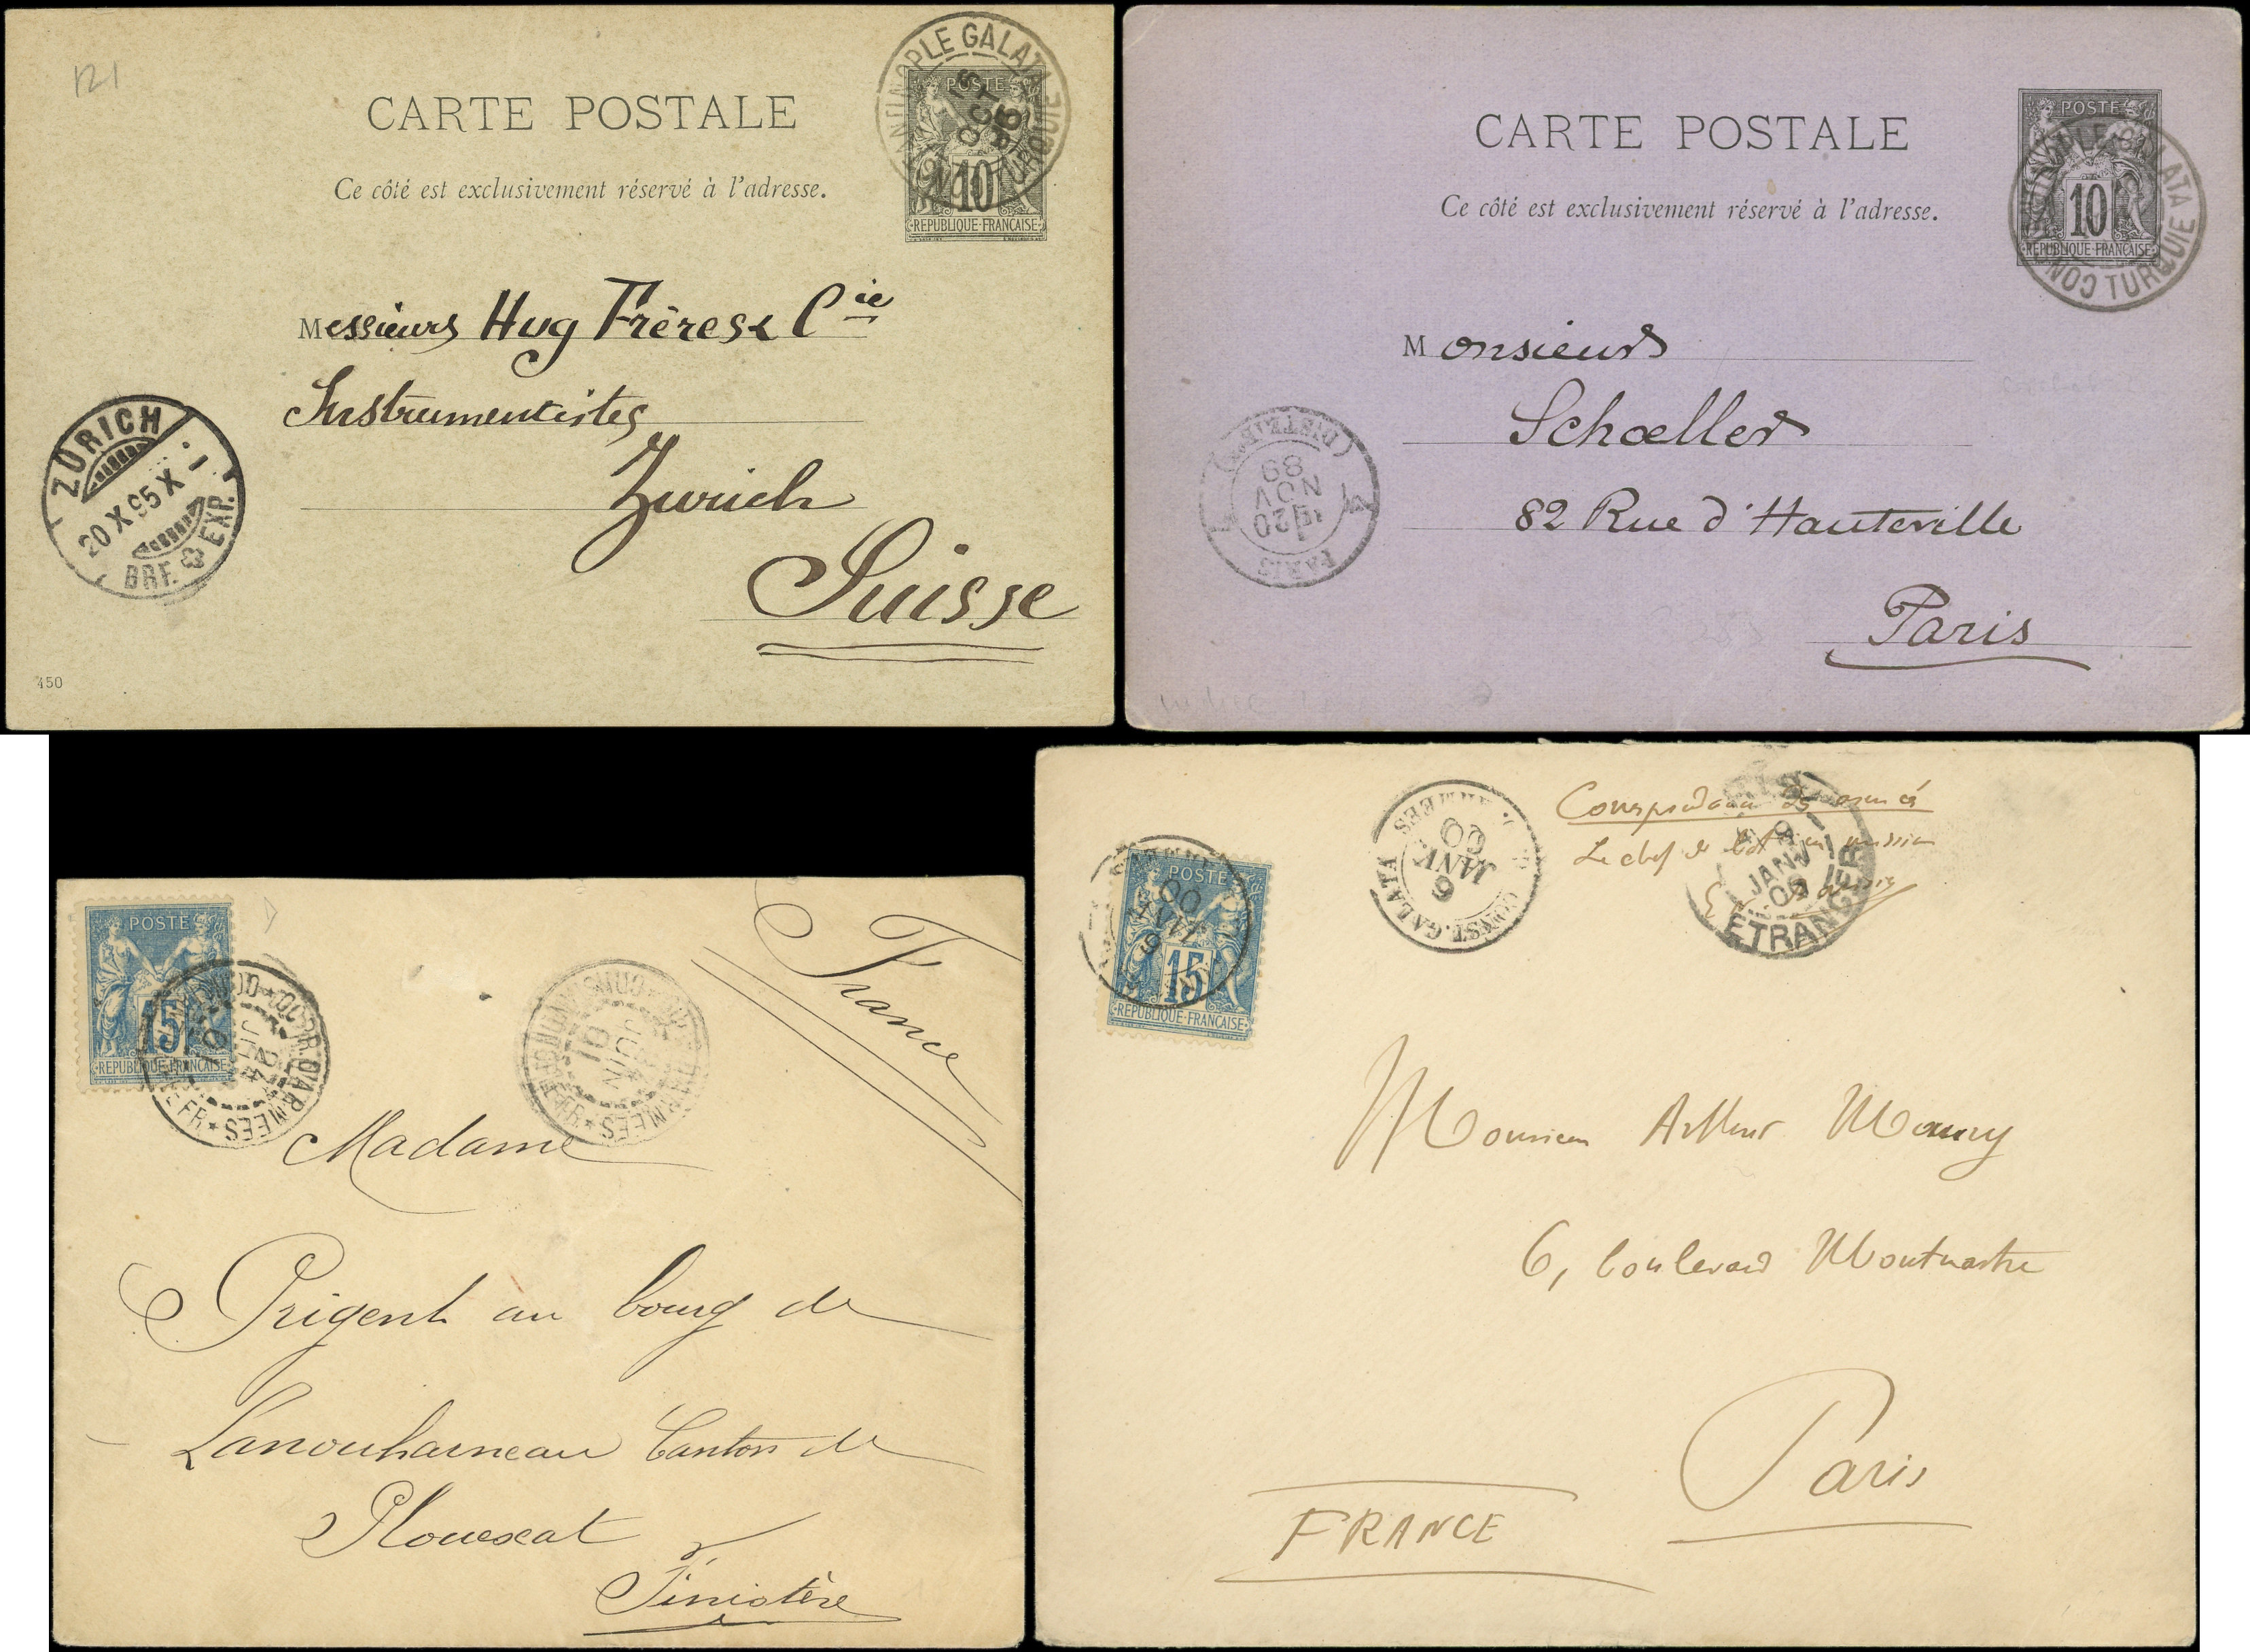 121
CARTE POSTALE
Ce côté est exclusivement réservé à l'adresse.
POSTE
10
REPUBLIQUE FRANÇAISE
GALATA
TURQUIE
OCT
95
Messieurs Hug Frères & Cie
Instrumentistes
Zurich
Suisse
ZÜRICH
20 X 95 X
BRF. & EXP.
450
CARTE POSTALE
Ce côté est exclusivement réservé à l'adresse.
POSTE
10
REPUBLIQUE FRANÇAISE
GALATA
TURQUIE
Monsieur
Schœller
82 Rue d'Hauteville
Paris
PARIS
20
NOV
89
(DISTRIB)
POSTE
15
REPUBLIQUE FRANÇAISE
CORR. D'ARMEES
24
JUIN
01
CORR. D'ARMEES
JUIN
01
France
Madame
Prigent au bourg de
Lanouharneau Canton de
Plouescat
Finistère
POSTE
15
REPUBLIQUE FRANÇAISE
6
JANV
00
CONST. GALATA
6
JANV.
00
ARMEES
Correspondance
Le chef de mission
JANV
ETRANGER
Monsieur Arthur Maury
6, boulevard Montmartre
Paris
FRANCE